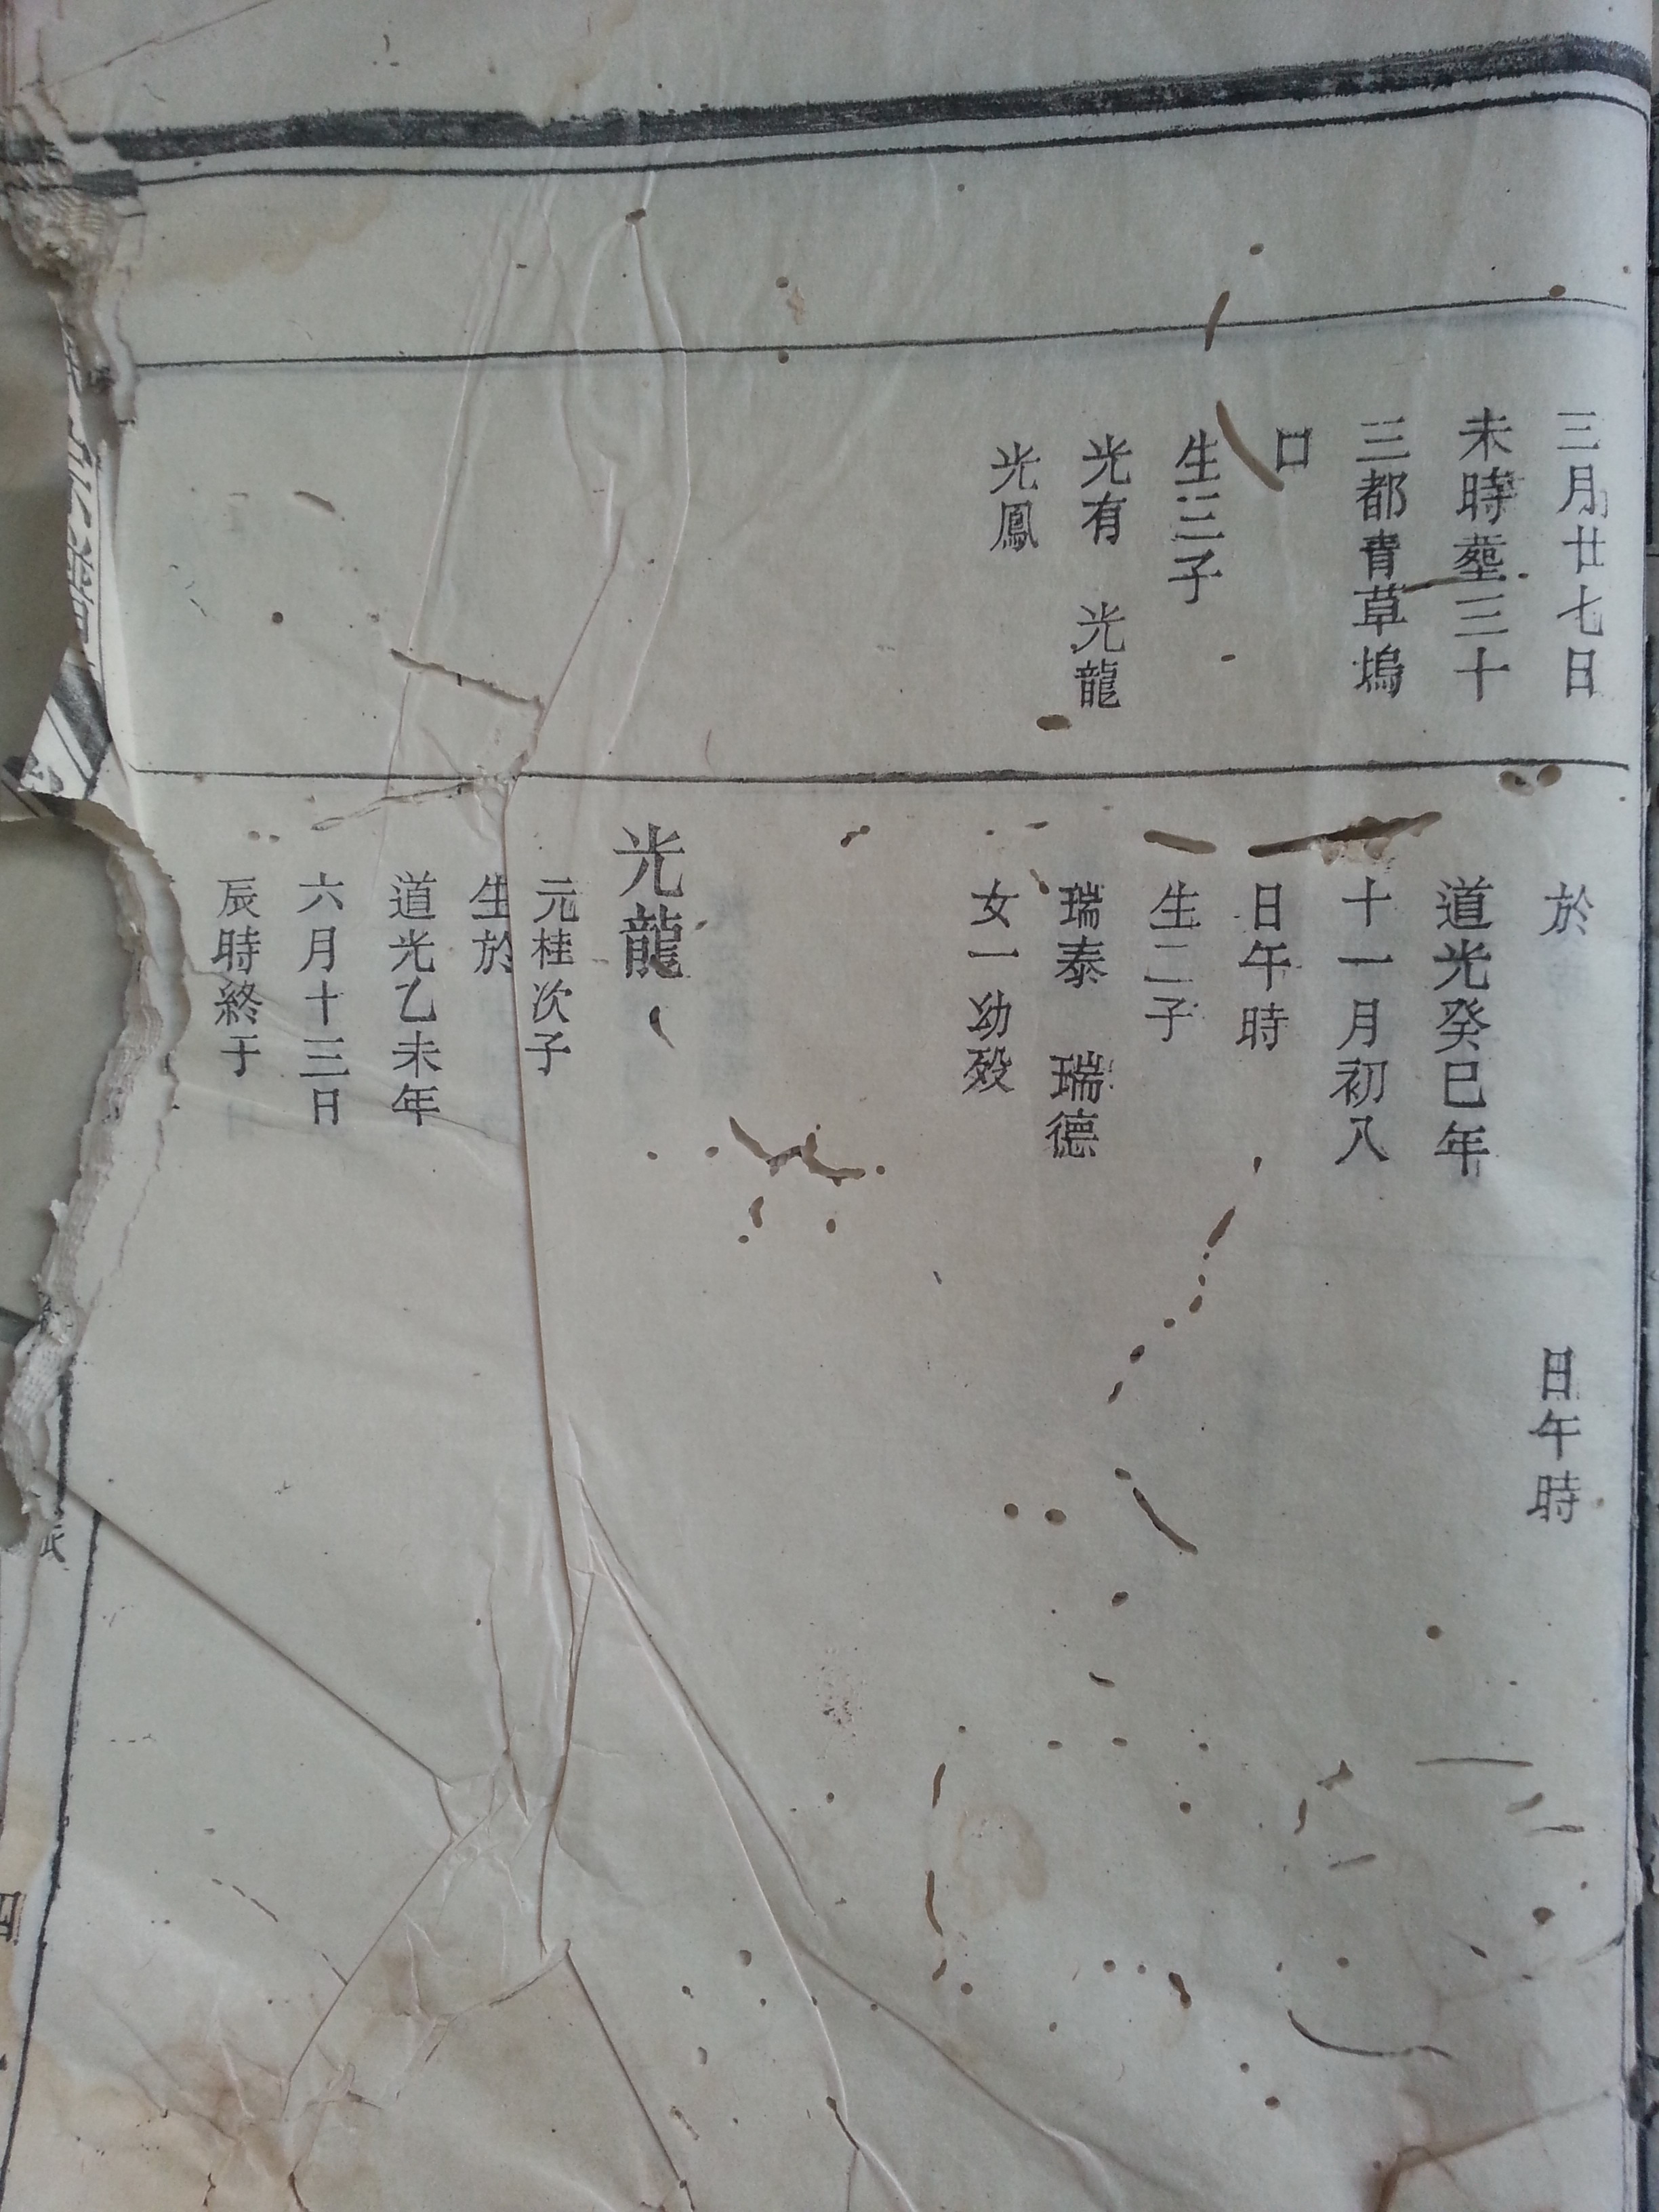 三月廿七日
未時塟三十
三都青草塢
口
生三子
光有 光龍
光鳳
於
道光癸巳年
十一月初八
日午時
生二子
瑞泰 瑞德
女一幼殁
光龍
元桂次子
生於
道光乙未年
六月十三日
辰時終于
日午時
四